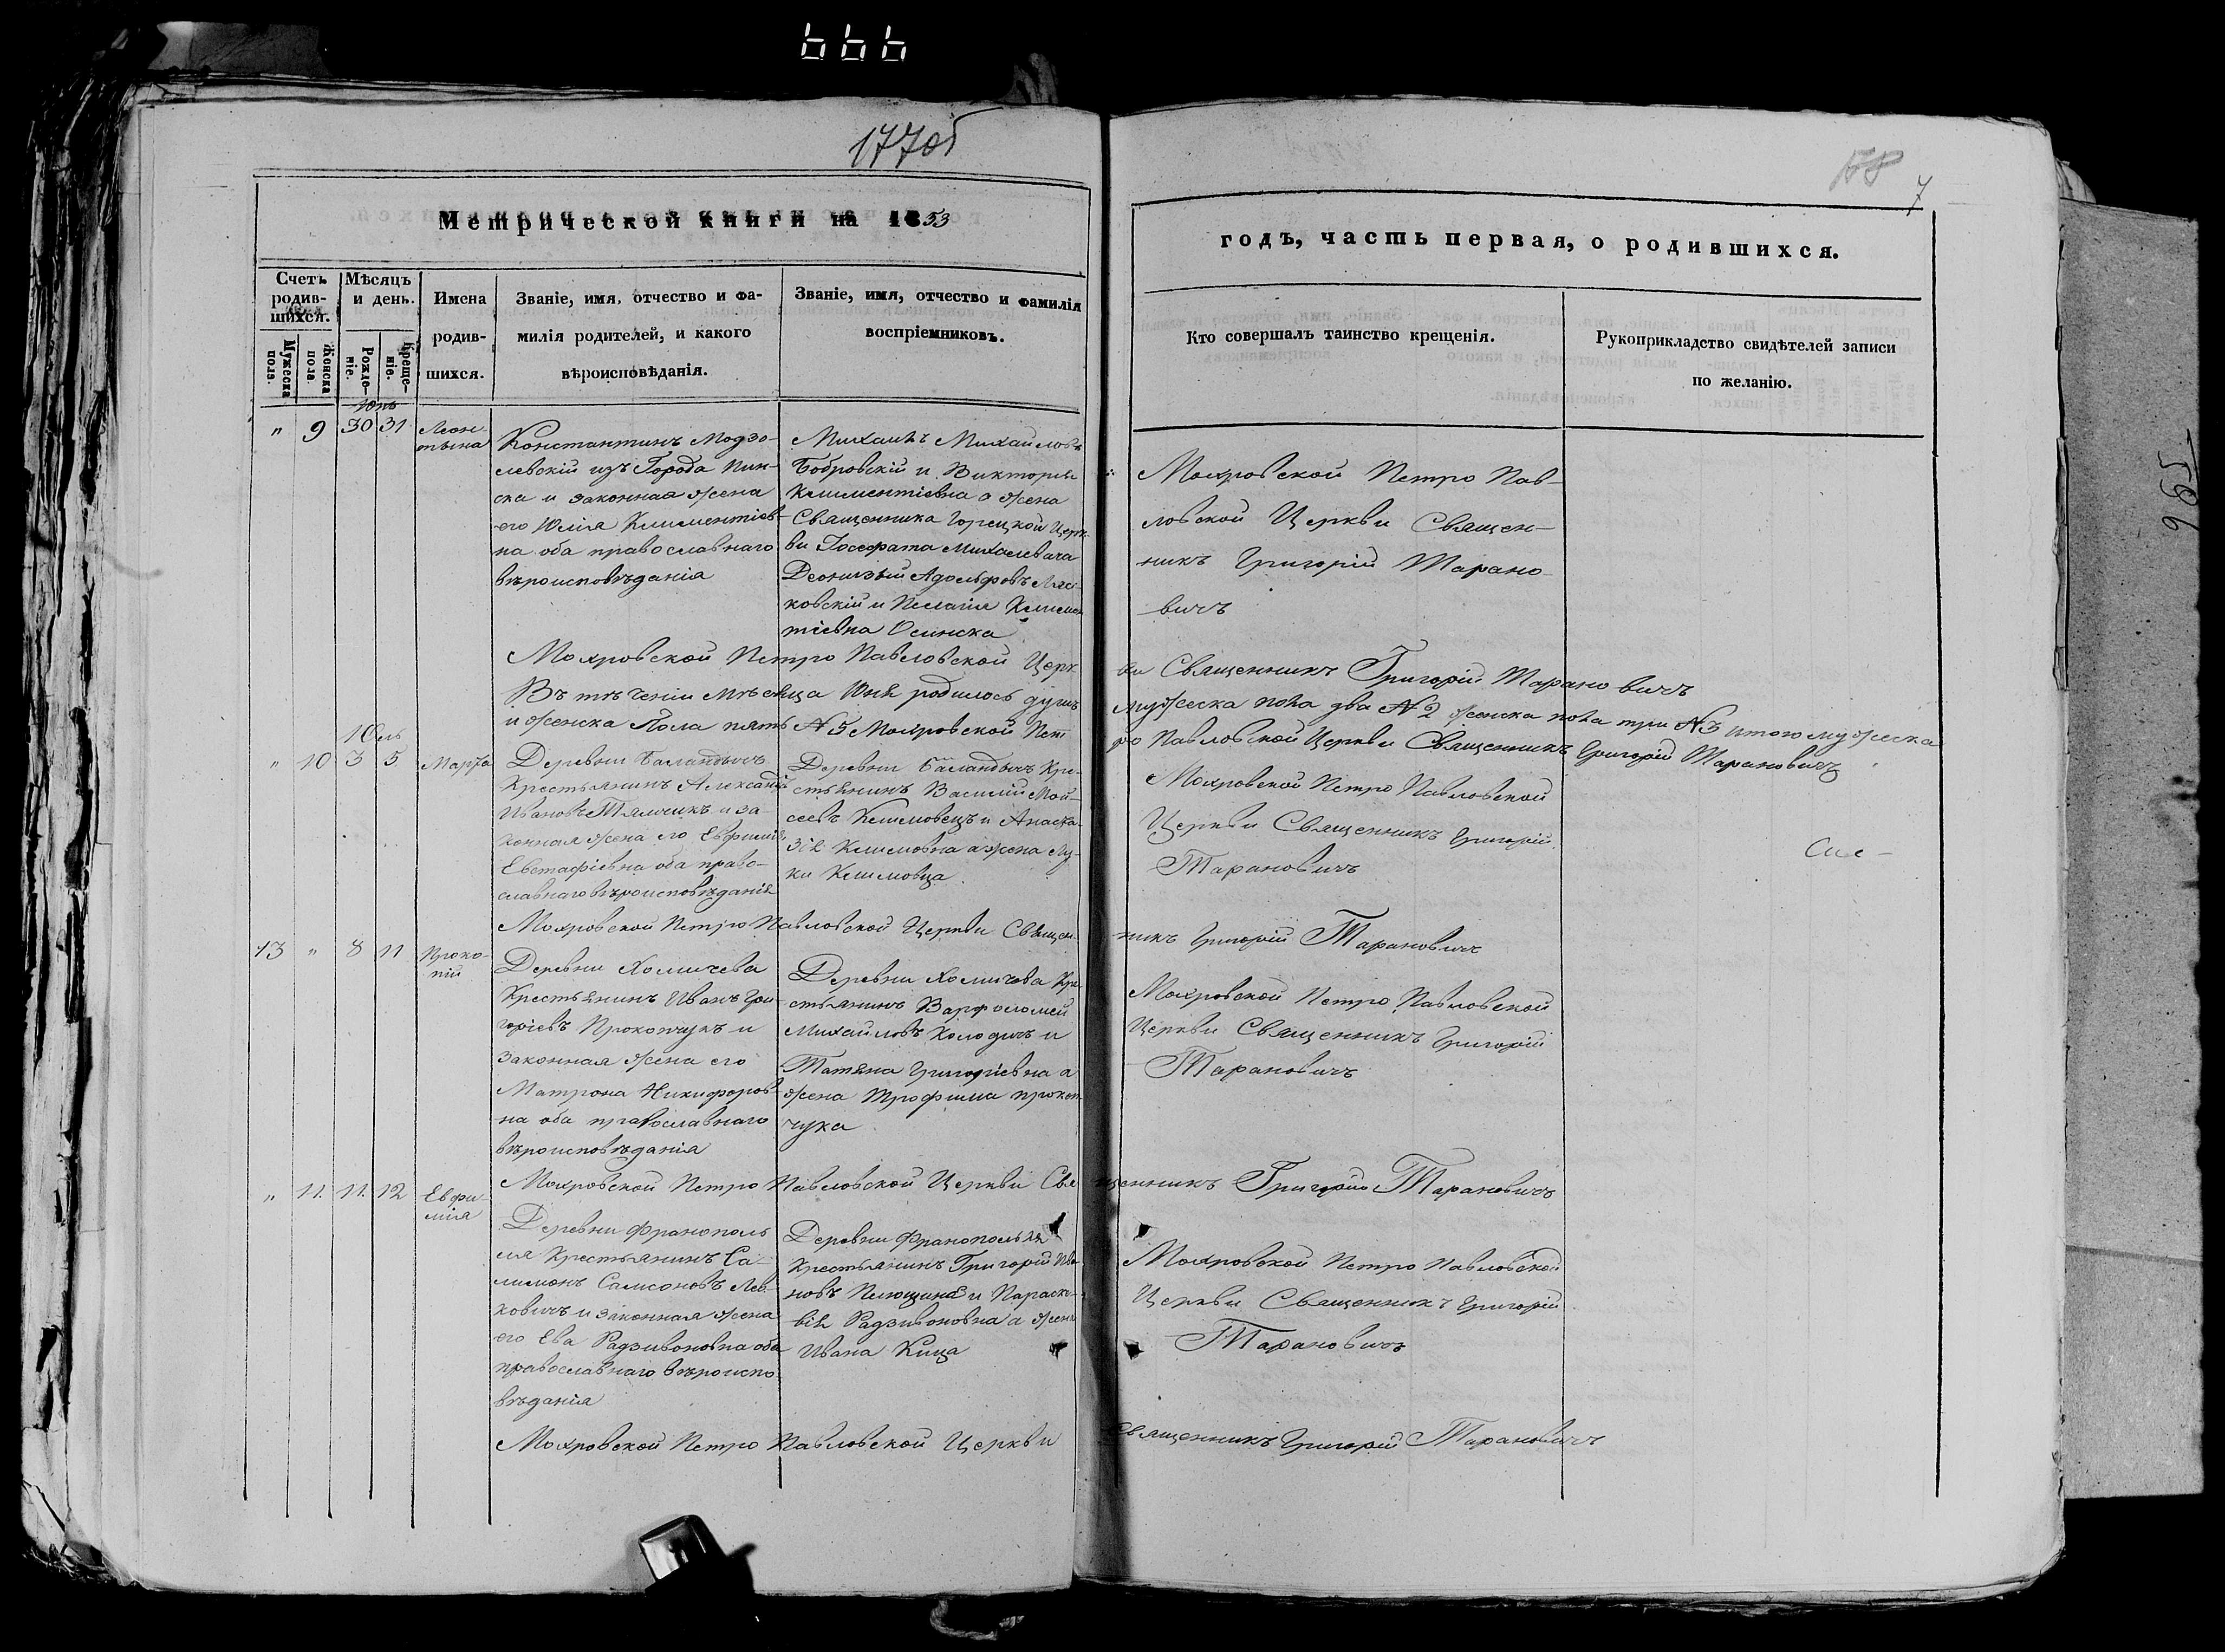 666
177об
58
7
965
Метрической книги на 1853
годъ, часть первая, о родившихся.
Счетъ родившихся.
Мужеска пола.
Женска пола.
Мѣсяцъ и день.
Рожденіе.
Крещеніе.
Имена
родив-
шихся.
Званіе, имя, отчество и фа-
милія родителей, и какого
вѣроисповѣданія.
Званіе, имя, отчество и фамилія
воспріемниковъ.
Кто совершалъ таинство крещенія.
Рукоприкладство свидѣтелей записи
по желанію.
" 9 30 31
Леон-
тына
Константинъ Модзо-
левскій изъ Города Пин-
ска и законная жена
его Юлія Климентіев-
на оба православнаго
вѣроисповѣданія
Михаилъ Михайловъ
Бобровскій и Викторія
Климентіевна а жена
Священника Горецкой Церк-
ви Іосафата Михалевича
Деонизый Адольфовъ
ковскій и Пелагія Климен
тіевна Осинска
Мохровской Петро Пав-
ловской Церкви Священ-
никъ Григорій Тарано-
вичъ
Мохровской Петро Павловской Церк
ви Священникъ Григорій Тарановичъ
Въ теченіи мѣсяца Юня родилось душъ
мужеска пола два №2 женска пола три №3 итого мужеска
и женска Пола пять №5 Мохровской Пет
ро Павловской Церкви Священникъ Григорій Тарановичъ
Юль
" 10 3 5
Марѳа
Деревни Баландычъ
Крестьянинъ Александ
Ивановъ Тямчикъ и за
конная жена его Евфимія
Евстафіевна оба право-
славнаго вѣроисповѣданія
Деревни Баландычъ Кре-
стьянинъ Василій Мой-
сеевъ Климовецъ и Анаста-
зія Климовна а жена Лу-
ки Климовца
Мохровской Петро Павловской
Церкви Священникъ Григорій
Тарановичъ
Мохровской Петро Павловской Церкви Священ-
никъ Григорій Тарановичъ
13 " 8 11
Проко-
пій
Деревни Хомичева
Крестьянинъ Иванъ Гри-
горіевъ Прокопчукъ и
законная жена его
Матрона Никифоров-
на оба православнаго
вѣроисповѣданія
Деревни Хомичева Кре
стьянинъ Варфоломей
Михайловъ Холодичъ и
Татяна Григоріевна а
жена Трофима Прокоп
чука
Мохровской Петро Павловской
Церкви Священникъ Григорій
Тарановичъ
Мохровской Петро Павловской Церкви Свя
щенникъ Григорій Тарановичъ
" 11. 11. 12
Евфи-
мія
Деревни Францполь
ля Крестьянинъ Са-
лимонъ Самсоновъ Лев-
ковичъ и законная жена
его Ева Радзивоновна оба
православнаго вѣроиспо
вѣданія
Деревни Францполья
Крестьянинъ Григорій Ива
новъ и Параске-
вія Радзивоновна а жена
Ивана Кица
Мохровской Петро Павловской
Церкви Священникъ Григорій
Тарановичъ
Мохровской Петро Павловской Церкви
Священникъ Григорій Тарановичъ